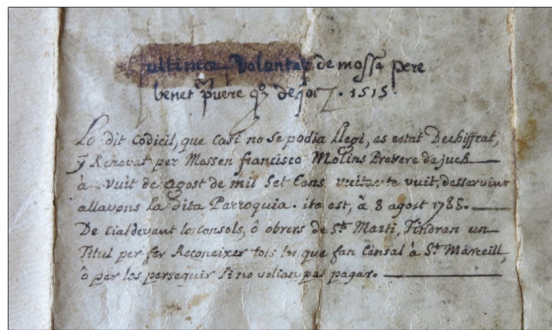 ultima Voluntat de mossen pere
benet p̃uere 1515
Lo dit Codicil, que casi no se podia llegi, es estat Dechiffrat,
y Renovat per Mossen francisco Molins Prevere de Juch
à vuit de agost de mil set Cens vuitanta vuit, desservint
allavons la dita Parroquia. ita est, à 8 agost 1788.
De cialdevant los Consols, ô obrers de St. Marti, Tindran un
Titul per fer Reconeixer tots los que fan Censal à St. Marcell,
ô per los perseguir si no volian pas pagar.